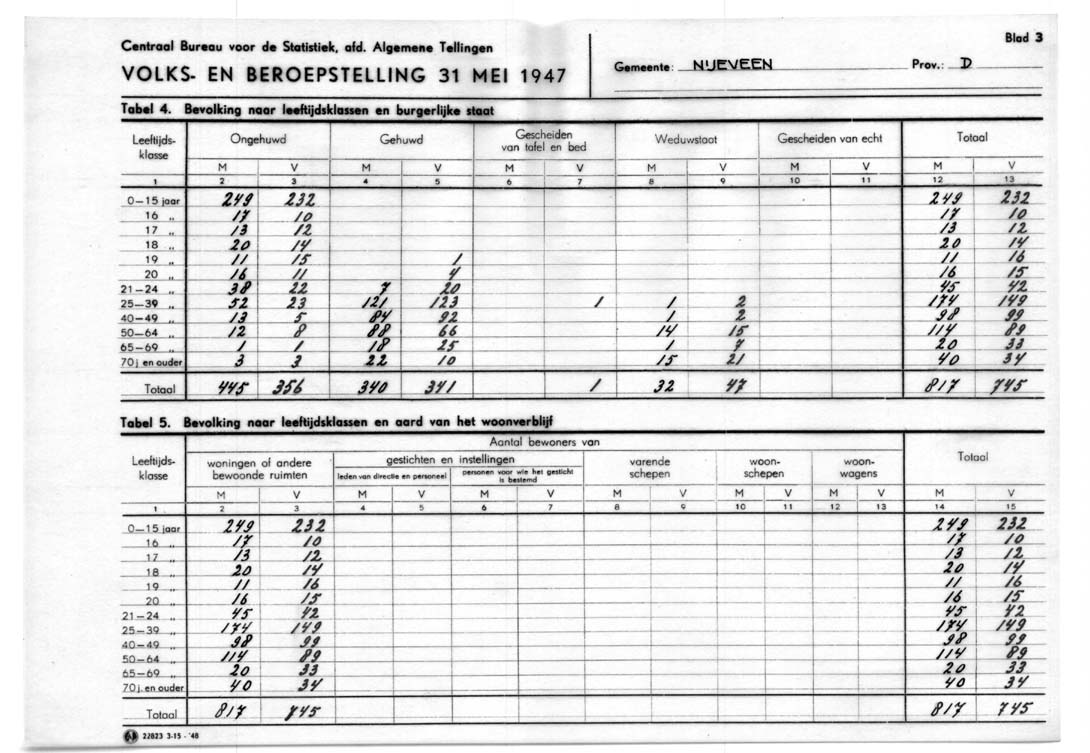 Centraal Bureau voor de Statistiek, afd. Algemene Tellingen
VOLKS- EN BEROEPSTELLING 31 MEI 1947
Gemeente: NIJEVEEN Prov.: D
Blad 3
Tabel 4. Bevolking naar leeftijdsklassen en burgerlijke staat
Leeftijds-klasse Ongehuwd Gehuwd Gescheiden van tafel en bed Weduwstaat Gescheiden van echt Totaal
M V M V M V M V M V M V
1 2 3 4 5 6 7 8 9 10 11 12 13
0—15 jaar 249 232 249 232
16 „ 17 10 17 10
17 „ 13 12 13 12
18 „ 20 14 20 14
19 „ 11 15 1 11 16
20 „ 16 11 4 16 15
21—24 „ 38 22 7 20 45 42
25—39 „ 52 23 121 123 1 1 2 174 149
40—49 „ 13 5 84 92 1 2 98 99
50—64 „ 12 8 88 66 14 15 114 89
65—69 „ 1 1 18 25 1 7 20 33
70 j. en ouder 3 3 22 10 15 21 40 34
Totaal 445 356 340 341 1 32 47 817 745
Tabel 5. Bevolking naar leeftijdsklassen en aard van het woonverblijf
Aantal bewoners van
Leeftijds-klasse woningen of andere bewoonde ruimten gestichten en instellingen varende schepen woon-schepen woon-wagens Totaal
leden van directie en personeel personen voor wie het gesticht is bestemd
M V M V M V M V M V M V M V
1 2 3 4 5 6 7 8 9 10 11 12 13 14 15
0—15 jaar 249 232 249 232
16 „ 17 10 17 10
17 „ 13 12 13 12
18 „ 20 14 20 14
19 „ 11 16 11 16
20 „ 16 15 16 15
21—24 „ 45 42 45 42
25—39 „ 174 149 174 149
40—49 „ 98 99 98 99
50—64 „ 114 89 114 89
65—69 „ 20 33 20 33
70 j. en ouder 40 34 40 34
Totaal 817 745 817 745
22823 3-15 - '48